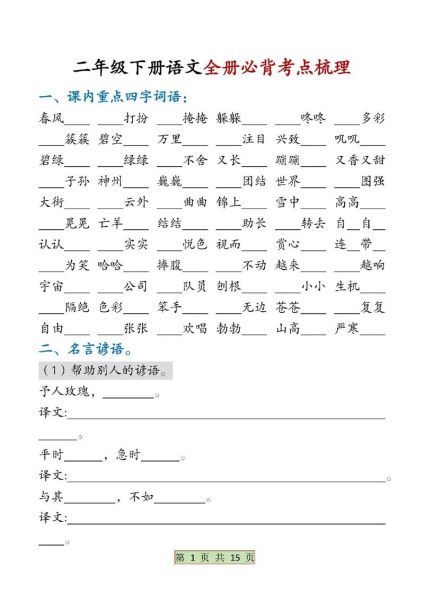 二年级下册语文全册必背考点梳理
一、课内重点四字词语:
春风____ ____打扮 ____掩掩 躲躲____ ____咚咚 ____多彩
____簇簇 碧空____ 万里____ ____注目 兴致____ 叽叽____
碧绿____ ____绿绿 ____不舍 又长____ 蹦蹦____ 又香又甜
____子孙 神州____ 巍巍____ ____团结 世界____ ____图强
大街____ ____云外 ____曲曲 锦上____ 雪中____ 高高____
____晃晃 亡羊____ 结结____ ____助长 ____转去 自__自__
认认____ ____实实 ____悦色 视而____ 赏心____ 连__带__
____为笑 哈哈____ 捧腹____ ____不动 越来____ ____越响
宇宙____ ____公司 ____队员 刨根____ ____小小 生机____
____隔绝 色彩____ 笨手____ ____无边 苍苍____ ____复复
自由____ ____张张 ____欢唱 勃勃____ 山高____ 严寒____
二、名言谚语。
(1)帮助别人的谚语。
予人玫瑰,______。
译文:______
______。
平时______,急时______。
译文:______。
与其______,不如______。
译文:______
____。
第 1 页 共 15 页